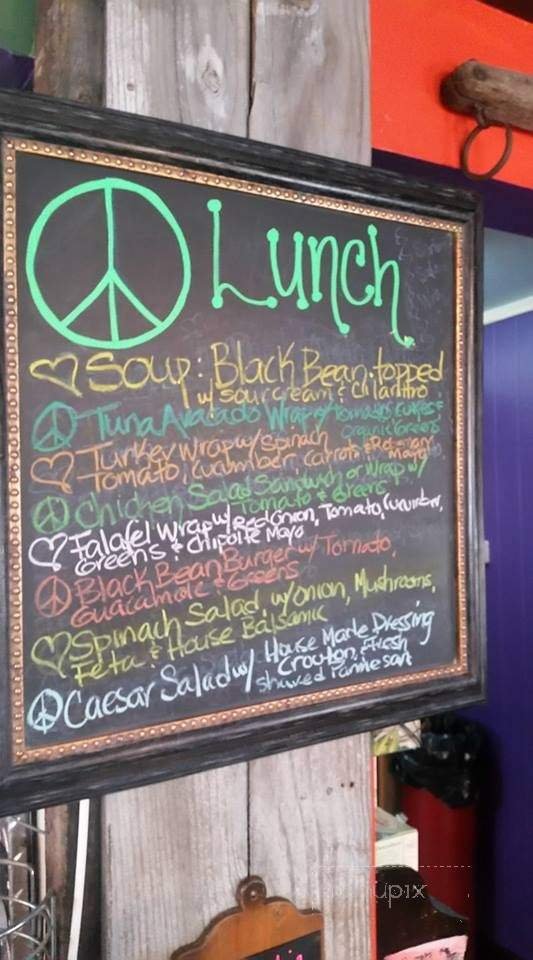 Lunch
Soup: Black Bean topped
w/ sour cream & cilantro
Tuna Avacado Wrap w/ Tomatoes, Cukes &
organic Greens
Turkey Wrap w/ Spinach
Tomato, Cucumber, Carrots & Rosemary
Mayo
Chicken Salad Sandwich or Wrap w/
Tomato & Greens
Falafel Wrap w/ Red Onion, Tomato, Cucumber,
Greens & Chipolte Mayo
Black Bean Burger w/ Tomato,
Guacamole & Greens
Spinach Salad, w/ onion, Mushrooms,
Feta & House Balsamic
Caesar Salad w/ House Made Dressing
Crouton, & Fresh
Shaved Parmesan